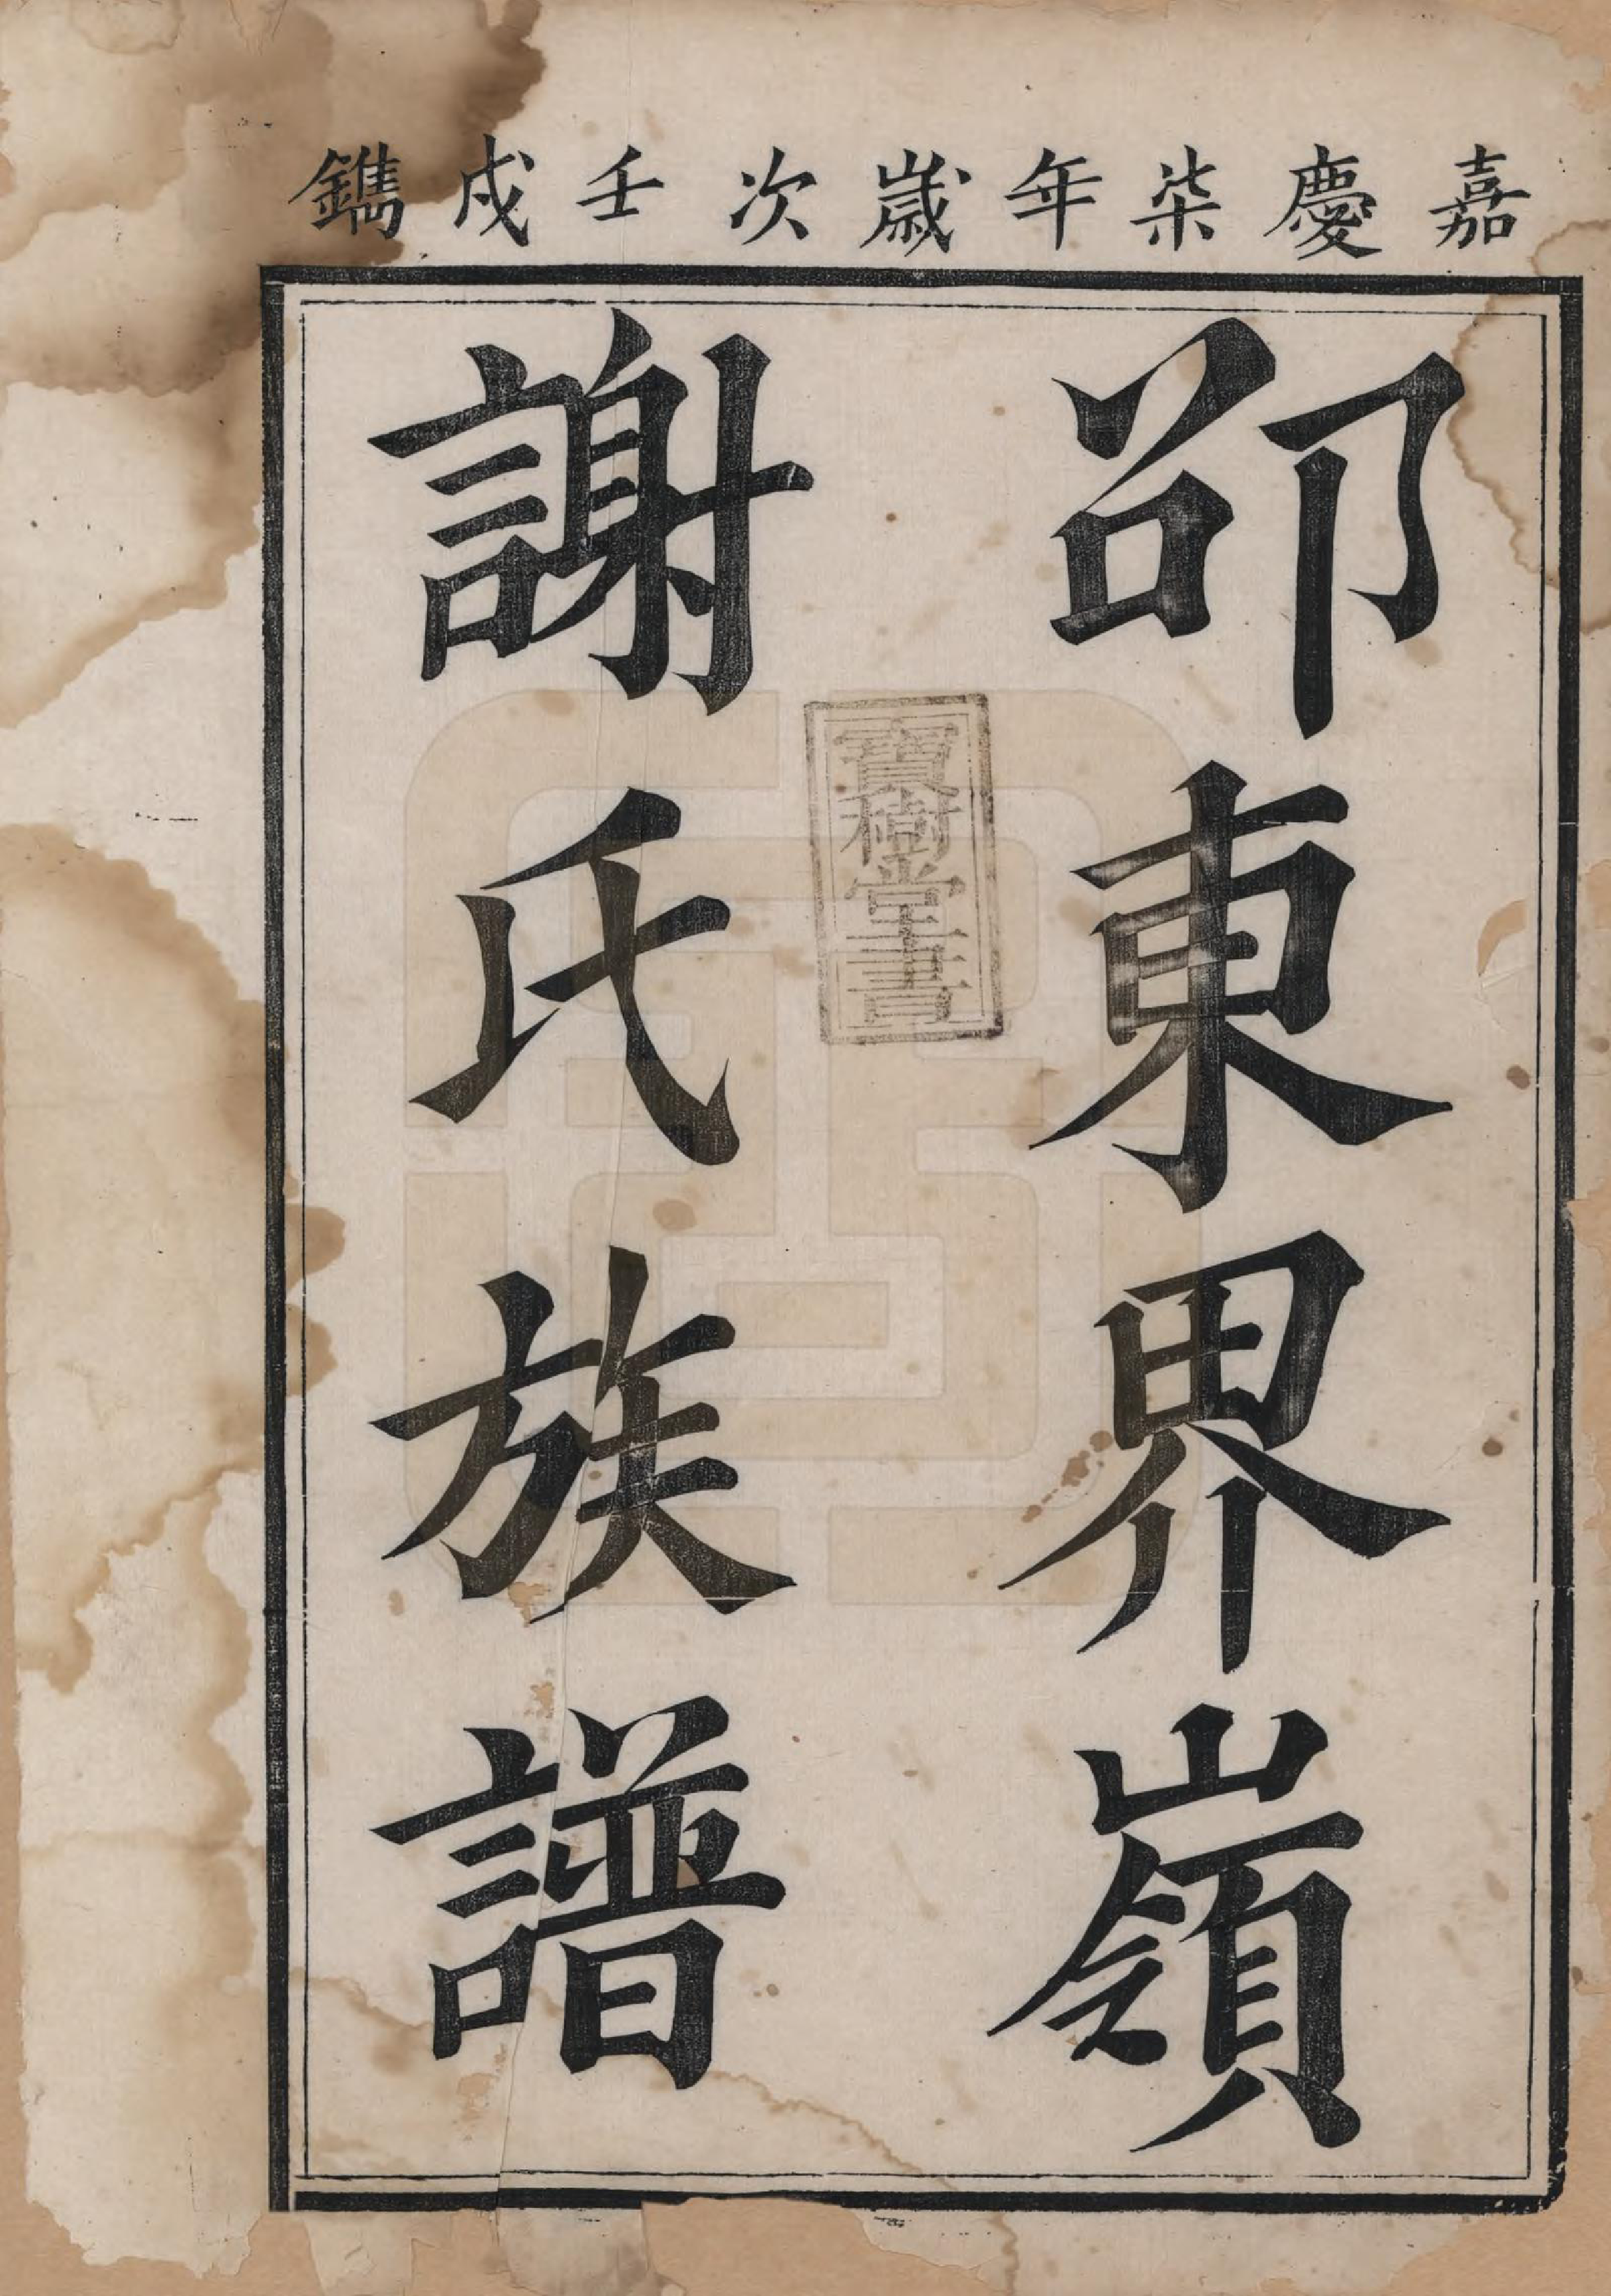 嘉慶柒年歲次壬戌鐫
邵東界嶺
謝氏族譜
寶樹堂書